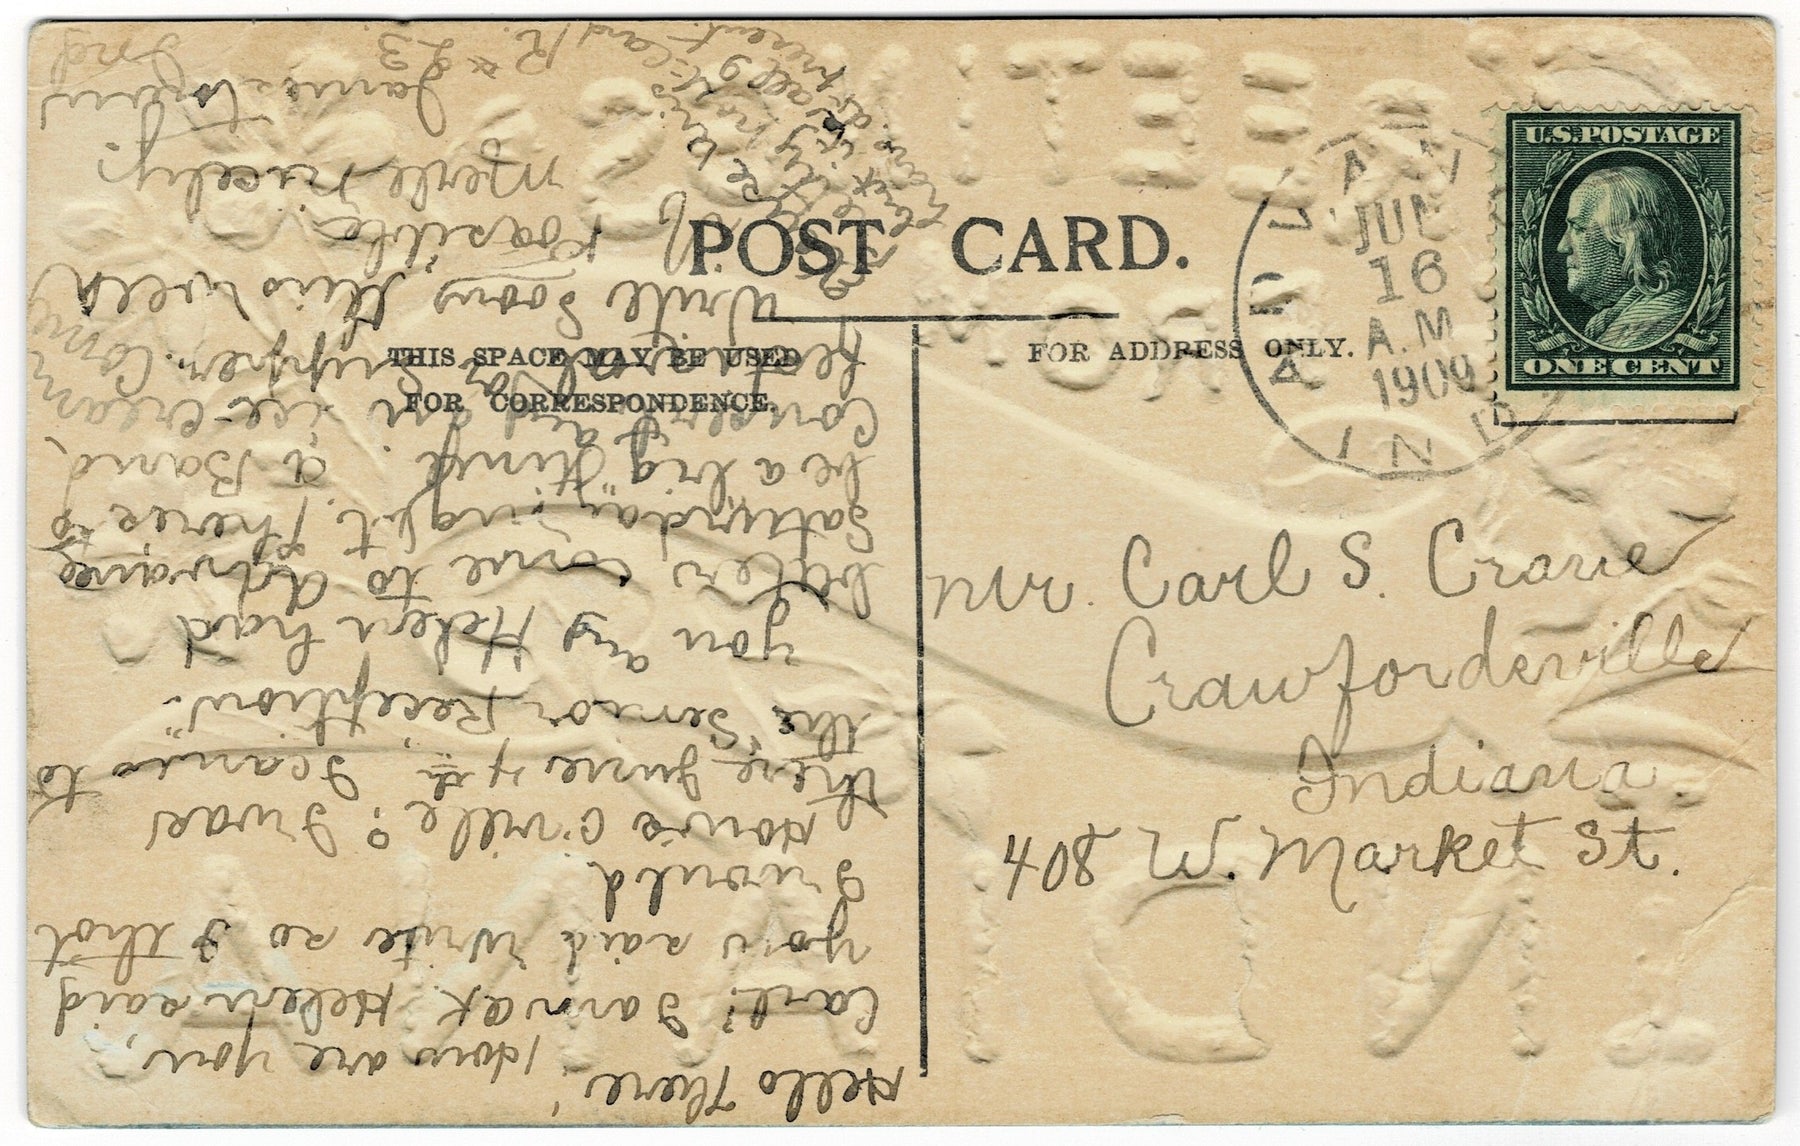 POST CARD.
THIS SPACE MAY BE USED
FOR CORRESPONDENCE.
FOR ADDRESS ONLY.
U.S. POSTAGE
ONE CENT
JUL
16
A.M
1909
IND
Mr. Carl S. Crane
Crawfordsville
Indiana.
408 W. Market St.
Hello There,
How are you,
Carl? Janet Helen said
you said write so I thot
I would
How's C'ville? I was
there June 4th I came to
the "Senior Reception".
you and Helen had
better come to Advance
Saturday night. There is
be a big "time". a Band,
Concert and an ice-cream
Supper. Come
Write Soon this week
Possible
Merle Nicely.
Jamestown
Ind
R # 23.